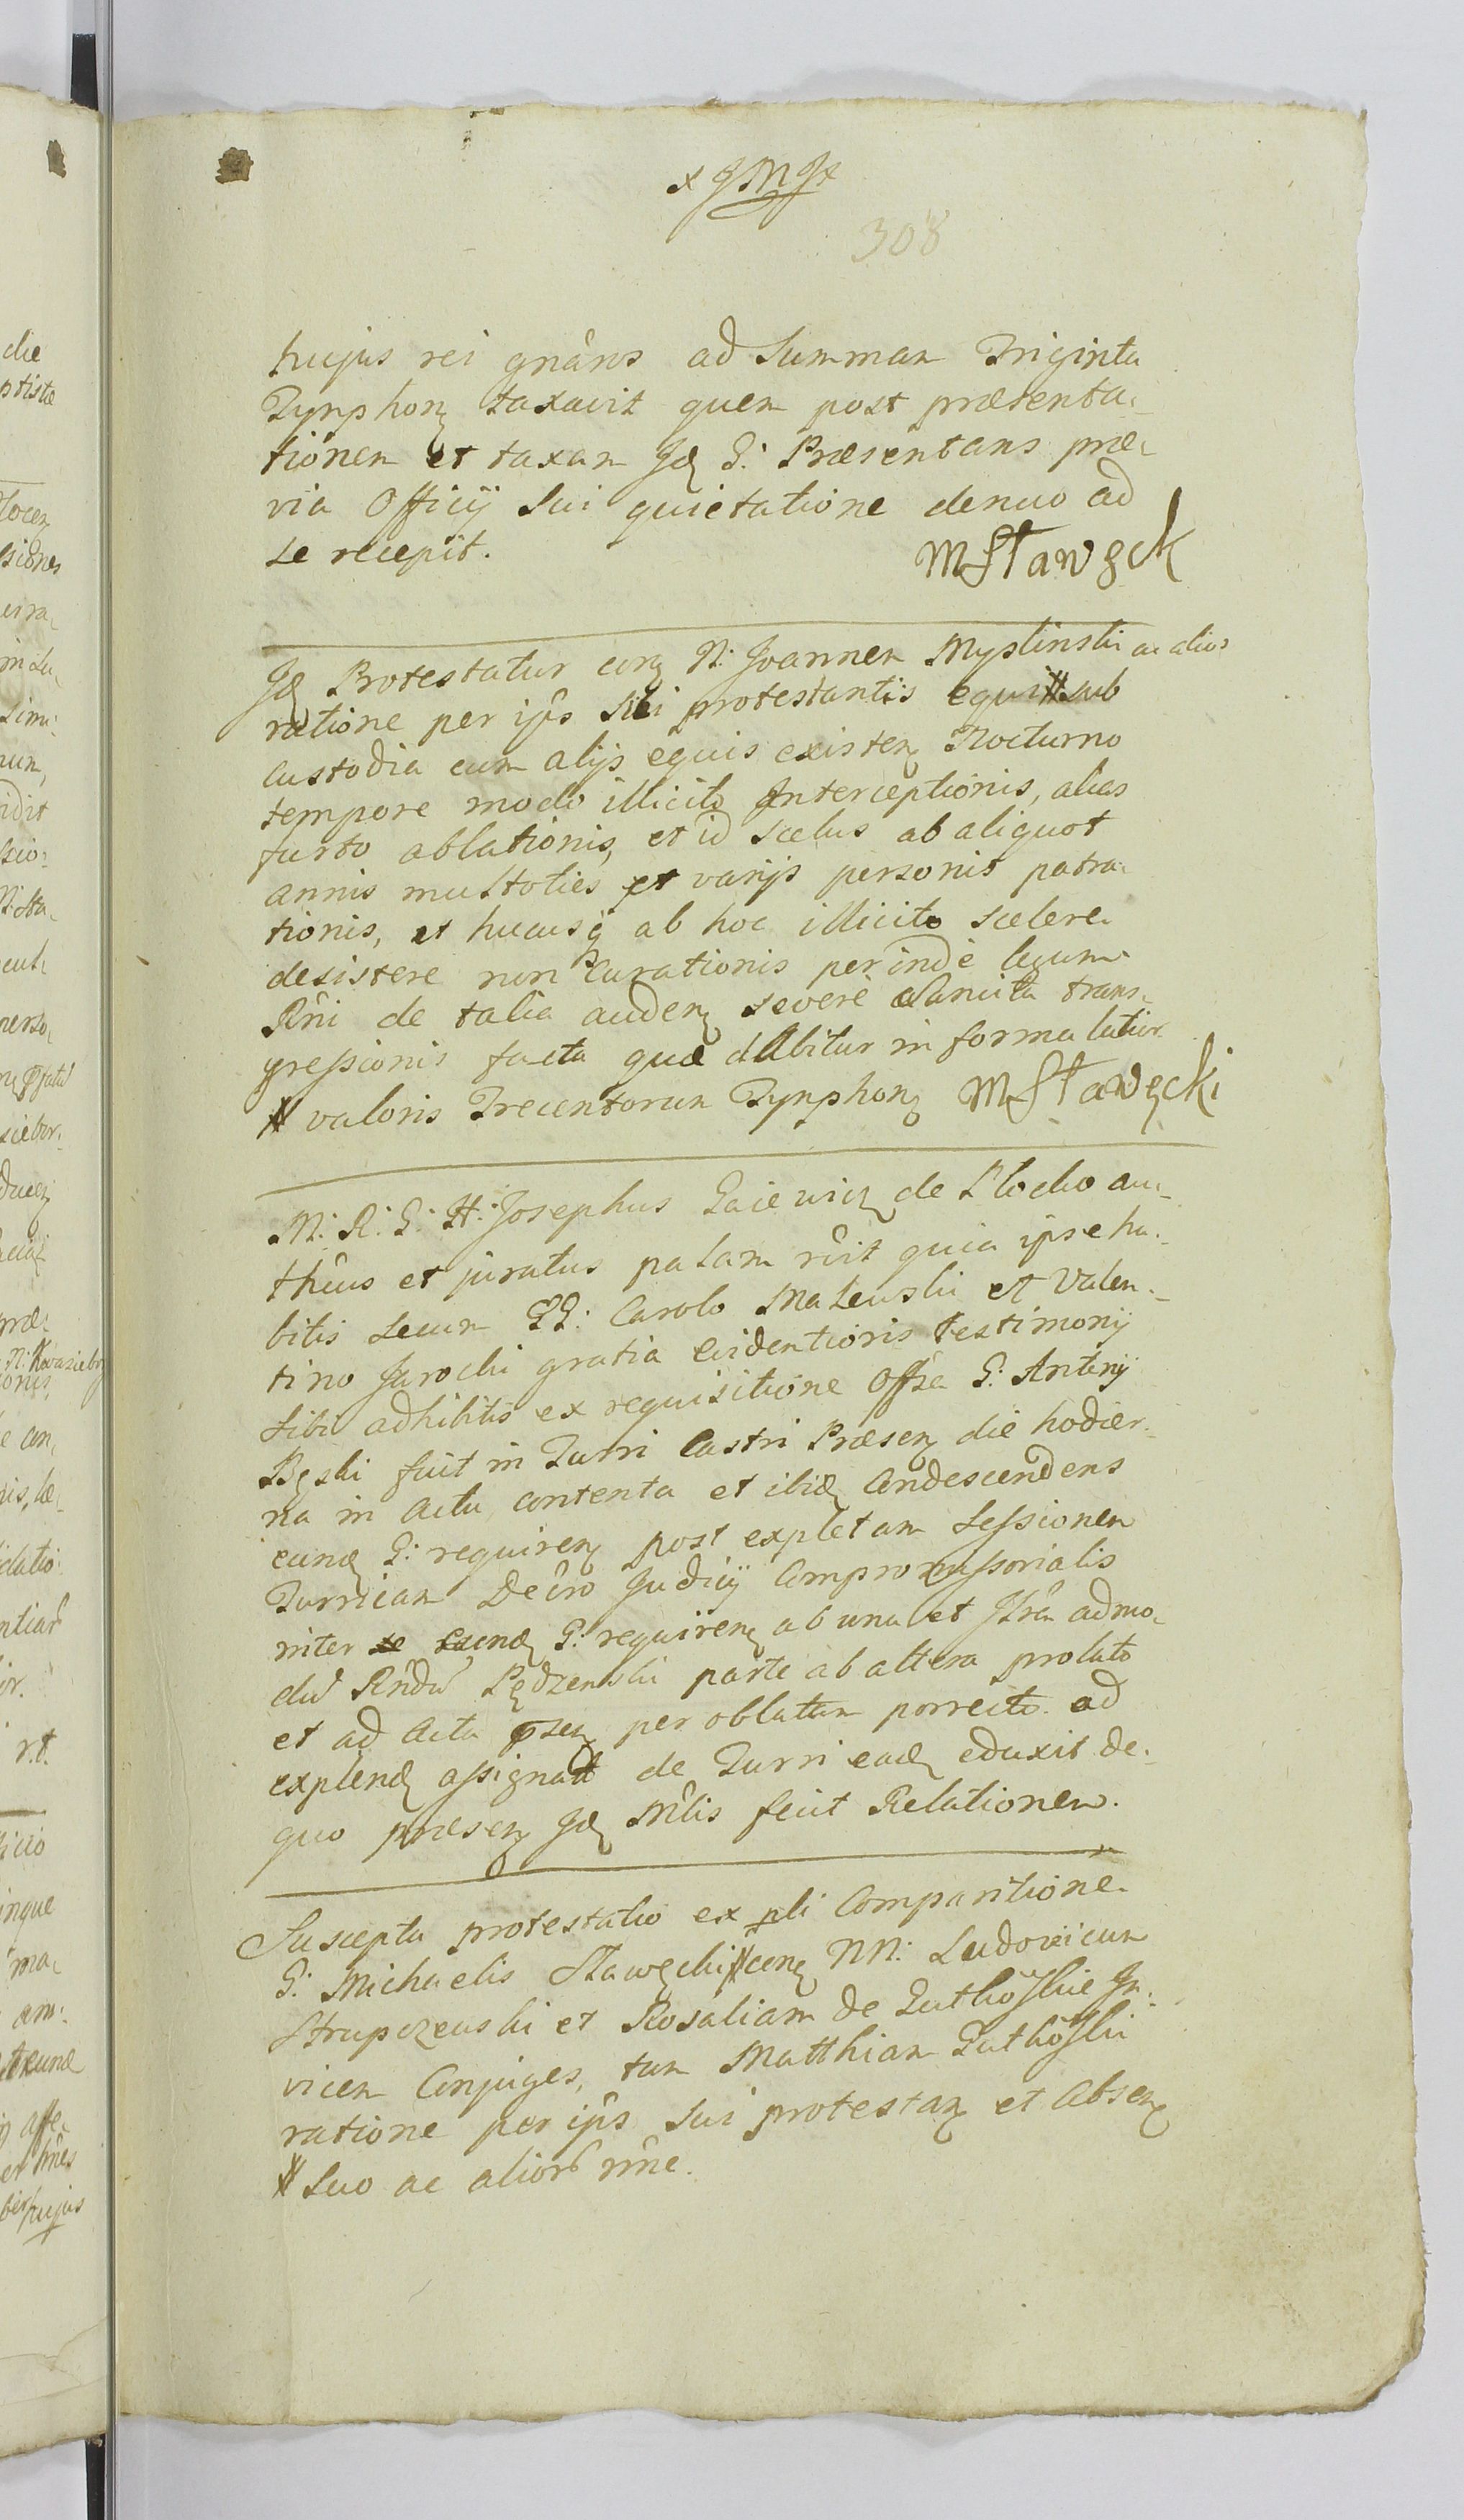 x JMJ x
308
hujus rei gnârus ad Summam Triginta
Tynphonȝ taxavit quem post præsenta-
tionem et taxam Jdȝ G: Præsentans præ-
via Officij Sui quietatione denuo ad
se recepit. MStawęck
Jdȝ Protestatur conȝ N: Joannem Myslinski ac alios
ratione per ips̃ Sui protestantis equi # sub
custodia cum alijs equis existenȝ Nocturno
tempore modo illicito Interceptionis, alias
furto ablationis, et id scelus ab aliquot
annis multoties et varijs personis patra-
tionis, et hucusq̃ ab hoc illicito scelere
desistere non curationis perinde legum
Rñi de talia audenȝ severè Sancita trans-
gressionis facta quæ dabitur in forma latiori
# valoris Trecentorum Tynphonȝ MStawęcki
M: R: G: H: Josephus Gaiewicȝ de Plocko au-
thẽus et juratus palam rc̃vit quia ipse ha-
bitis secum GG: Carolo Malewski et Valen-
tino Jarocki gratia evidentioris testimonij
sibi adhibitis ex requisitione Offsa G: Antonij
Bęski fuit in Turri Castri Præsenȝ die hodier-
na in Actu contenta et ibidȝ Condescendens
eundȝ G: requirenȝ post expletam Sessionem
Turricam Decro Judicij Compromissorialis
inter se eundȝ G: requirenȝ ab una et Jltrẽ admo-
dũ Rñdũ Pędzenski parte ab altera prolato
et ad Acta p̃senȝ per oblatam porrecto ad
explendȝ assignat de Turri eadȝ eduxit de
quo præsenȝ Jdȝ Mllis fecit Relationem.
Suscepta protestatio ex p̃li Comparitione
G: Michaelis Stawęcki # conȝ NN: Ludovicum
Strupczewski et Rosaliam de Gutkoskie In-
vicem Conjuges, tum Matthiam Gutkoski
ratione per ips̃ Sui protestanȝ et absenȝ
# Suo ac aliorũ nñe.